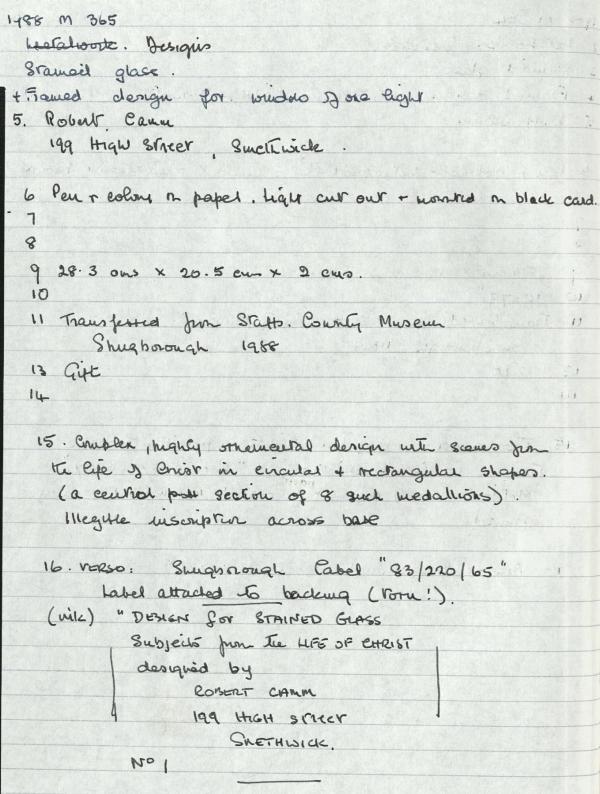 1988 M 365
Metalwork. Designs
Stained glass.
+ Framed design for window of one light
5. Robert Camm
199 High Street, Smethwick.
6 Pen + colour on paper. Light cut out + mounted on black card.
7
8
9 28.3 cms x 20.5 cms x 2 cms.
10
11 Transferred from Staffs. County Museum
Shugborough 1988
13 Gift
14
15. Complex, highly ornamental design with scenes from
the life of Christ in circular + rectangular shapes.
(a central section of 8 such medallions).
Illegible inscription across base
16. VERSO: Shugborough label "83/220/65"
Label attached to backing (torn!).
(ink) "DESIGN for STAINED GLASS
Subjects from the LIFE OF CHRIST
designed by
ROBERT CAMM
199 HIGH STREET
SMETHWICK.
No 1